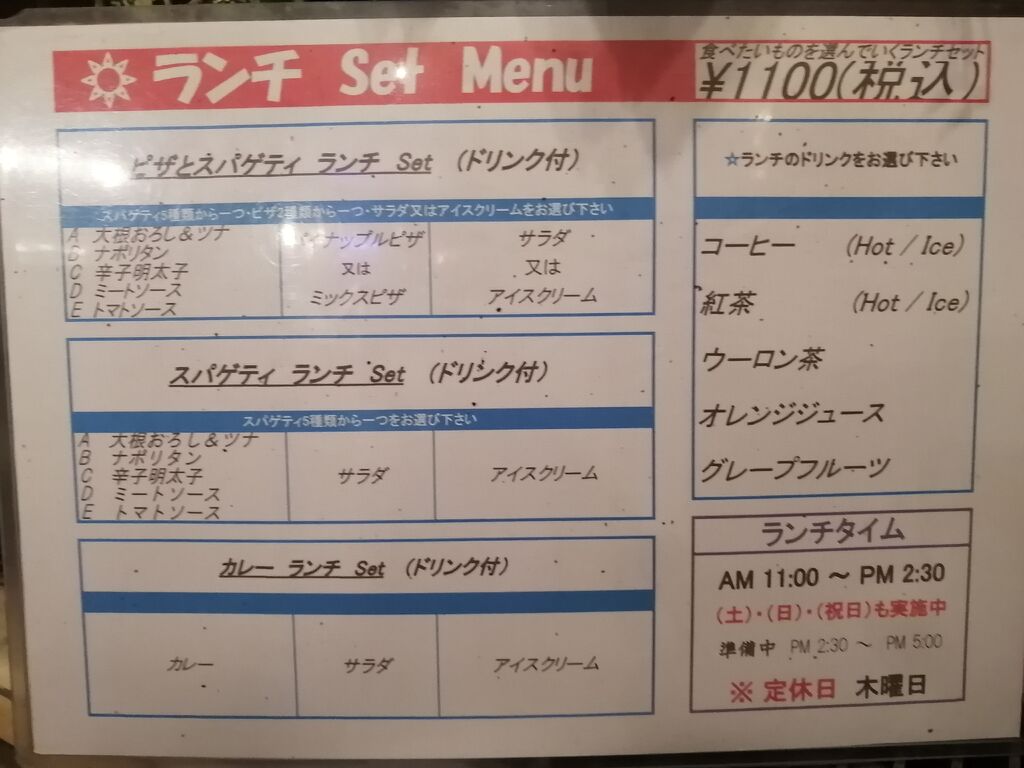 ランチ Set Menu
食べたいものを選んでいくランチセット
¥1100(税込)
ピザとスパゲティ ランチ Set (ドリンク付)
スパゲティ5種類から一つ・ピザ2種類から一つ・サラダ又はアイスクリームをお選び下さい
A 大根おろし&ツナ
B ナポリタン
C 辛子明太子
D ミートソース
E トマトソース
パイナップルピザ
又は
ミックスピザ
サラダ
又は
アイスクリーム
スパゲティ ランチ Set (ドリンク付)
スパゲティ5種類から一つをお選び下さい
A 大根おろし&ツナ
B ナポリタン
C 辛子明太子
D ミートソース
E トマトソース
サラダ
アイスクリーム
カレー ランチ Set (ドリンク付)
カレー
サラダ
アイスクリーム
☆ランチのドリンクをお選び下さい
コーヒー (Hot / Ice)
紅茶 (Hot / Ice)
ウーロン茶
オレンジジュース
グレープフルーツ
ランチタイム
AM 11:00 ~ PM 2:30
(土)・(日)・(祝日)も実施中
準備中 PM 2:30 ~ PM 5:00
※ 定休日 木曜日